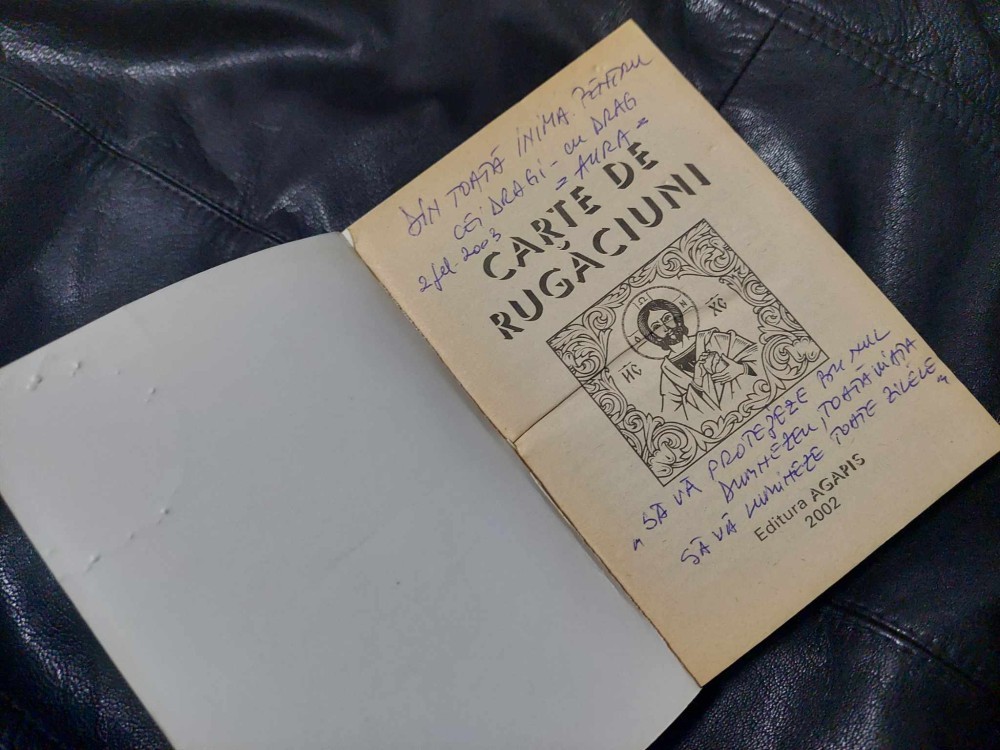 DIN TOATĂ INIMA PENTRU
CEI DRAGI - CU DRAG
= AURA =
2 feb. 2003
CARTE DE
RUGĂCIUNI
IИC
XC
" SĂ VĂ PROTEJEZE BUNUL
DUMNEZEU, TOATĂ VIAȚA
SĂ VĂ LUMINEZE TOATE ZILELE "
Editura AGAPIS
2002